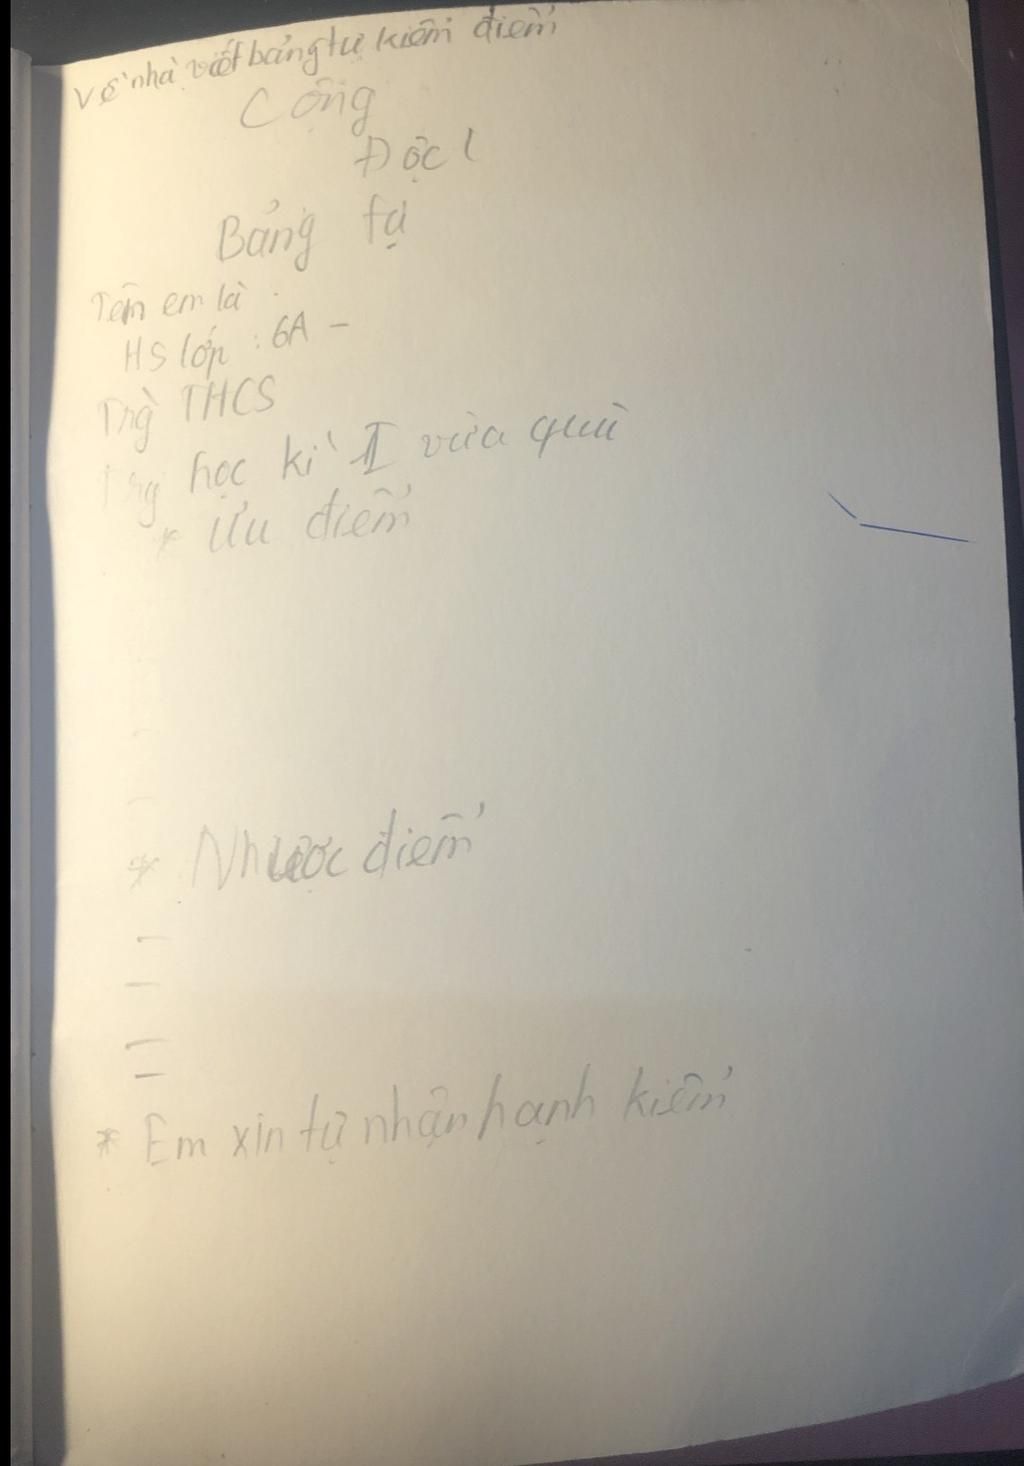 Về nhà viết bảng tự kiểm điểm
Cộng
Độc l
Bảng tự
Tên em là
HS lớp : 6A -
Trg THCS
Trg học kì I vừa qua
* Ưu điểm
* Nhược điểm
* Em xin tự nhận hạnh kiểm